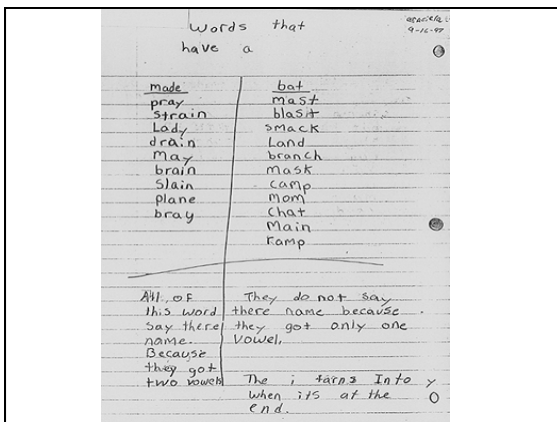 Words that
have a
9-16-97
made
pray
strain
Lady
drain
May
brain
slain
plane
bray
bat
mast
blast
smack
Land
branch
mask
camp
mom
chat
Main
ramp
All of
this word
say there
name.
Because
they got
two vowels
They do not say
there name because
they got only one
vowel.
The i turns Into y
when its at the
end.